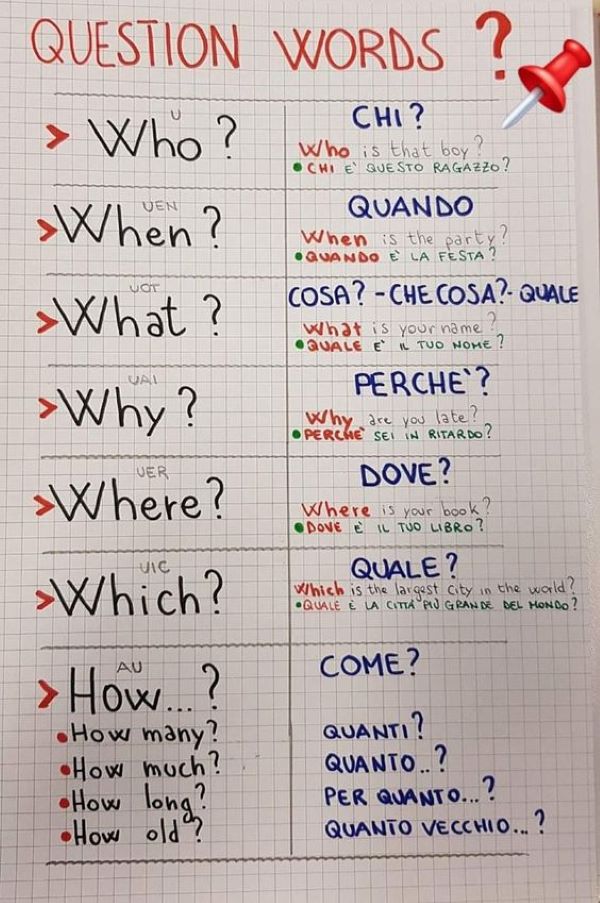 QUESTION WORDS ?
U
Who ?
CHI?
Who is that boy?
• CHI E' QUESTO RAGAZZO?
UEN
When ?
QUANDO
When is the party?
• QUANDO È LA FESTA?
UOT
What ?
COSA? - CHE COSA? - QUALE
What is your name?
• QUALE E' IL TUO NOME?
UAI
Why ?
PERCHE'?
Why are you late?
• PERCHE' SEI IN RITARDO?
UER
Where?
DOVE?
Where is your book?
• DOVE È IL TUO LIBRO?
UIC
Which?
QUALE?
Which is the largest city in the world?
• QUALE È LA CITTA' PIÙ GRANDE DEL MONDO?
AU
How...?
COME?
• How many?
QUANTI?
• How much?
QUANTO..?
• How long?
PER QUANTO...?
• How old?
QUANTO VECCHIO...?